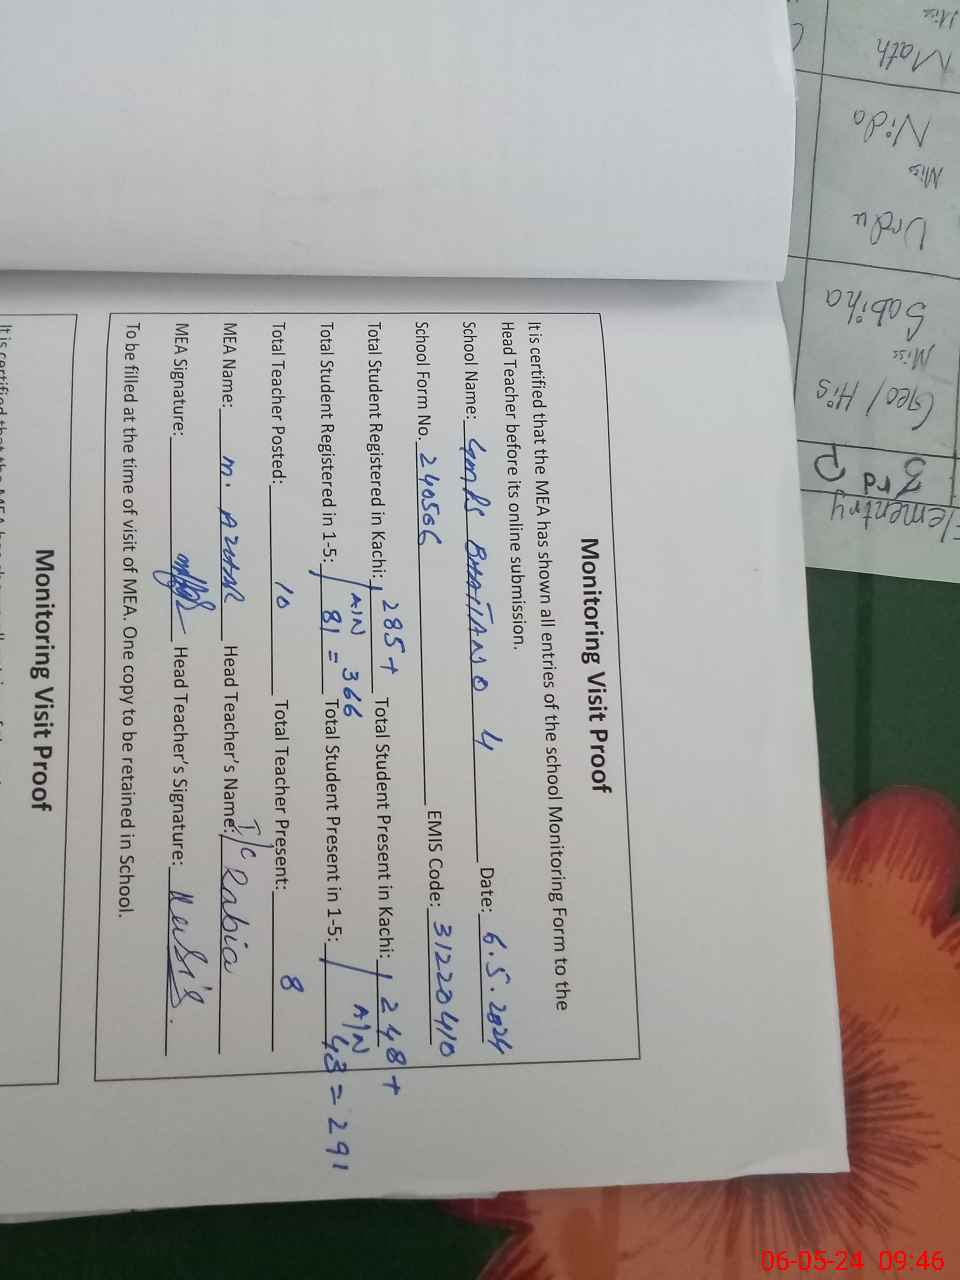 Monitoring Visit Proof
It is certified that the MEA has shown all entries of the school Monitoring Form to the
Head Teacher before its online submission.
School Name: BHATIAN 0 4 Date: 6.5.2024
School Form No. 240506 EMIS Code: 31220410
Total Student Registered in Kachi: 285+ Total Student Present in Kachi: 248+
A/N A/N
Total Student Registered in 1-5: 81 = 366 Total Student Present in 1-5: 43 = 291
Total Teacher Posted: 10 Total Teacher Present: 8
MEA Name: M. AZHAR Head Teacher's Name: I/C Rabia
MEA Signature: Head Teacher's Signature:
To be filled at the time of visit of MEA. One copy to be retained in School.
Monitoring Visit Proof
Elementry
3rd
Geo/His
Miss
Sabiha
Urdu
Miss
Nida
Math
Miss
06-05-24 09:46